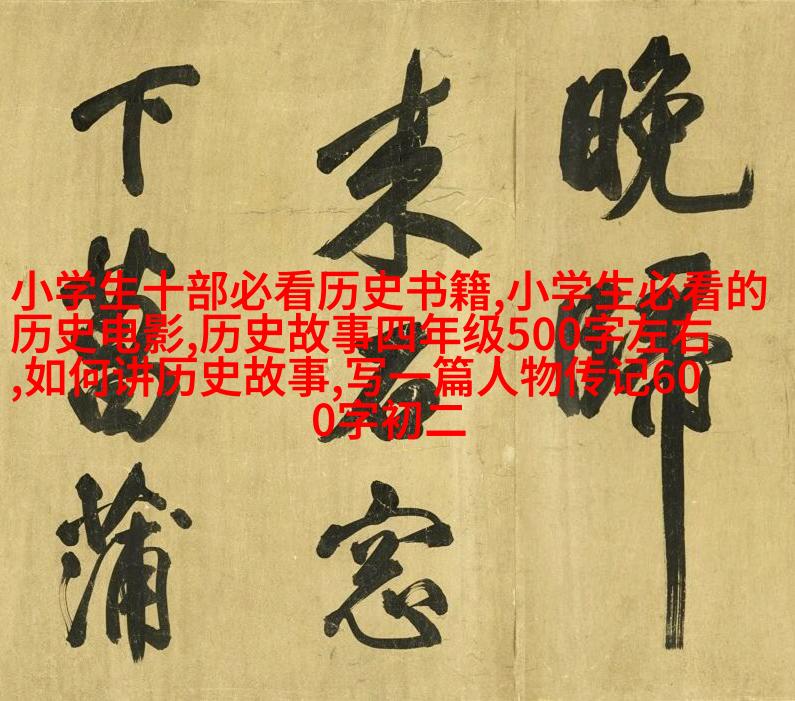 小学生十部必看历史书籍,小学生必看的
历史电影,历史故事四年级500字左右
,如何讲历史故事,写一篇人物传记60
0字初二
晚
来窓
下蒲